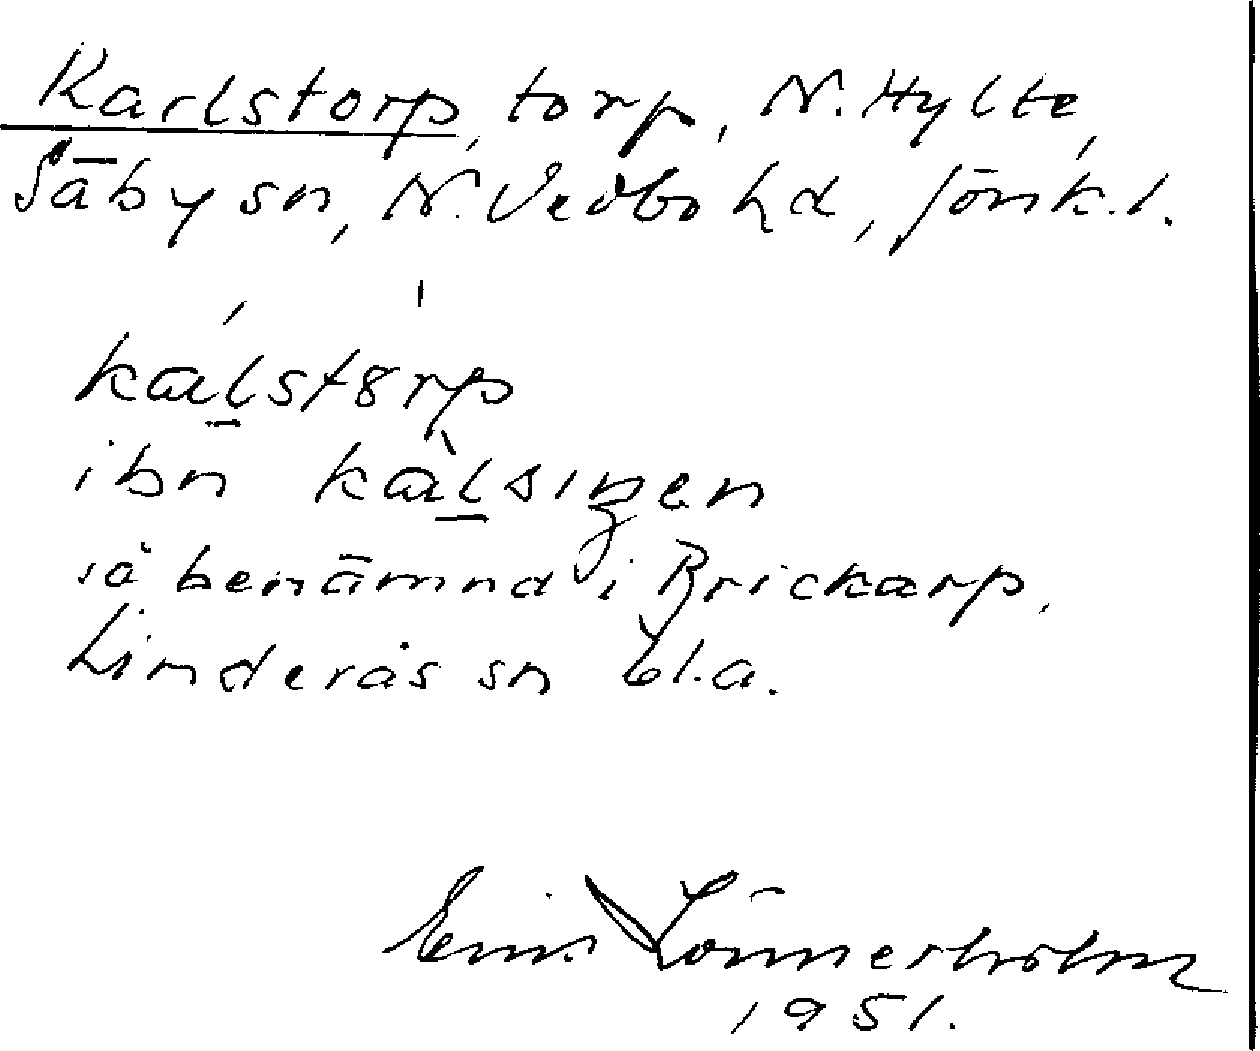 Karlstorp, torp, N. Hylte,
Säby sn, N. Vedbo hd, Jönk. l.
kalstørp
ibn kalsıŋen
så benämnd i Brickarp,
Linderås sn bl.a.
Emil Lönnerholm
1951.